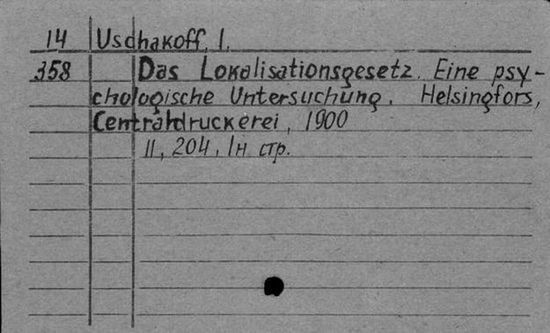 14 Uschakoff, I.
358 Das Lokalisationsgesetz. Eine psy-
chologische Untersuchung. Helsingfors,
Centraldruckerei, 1900
II, 204, 1н стр.